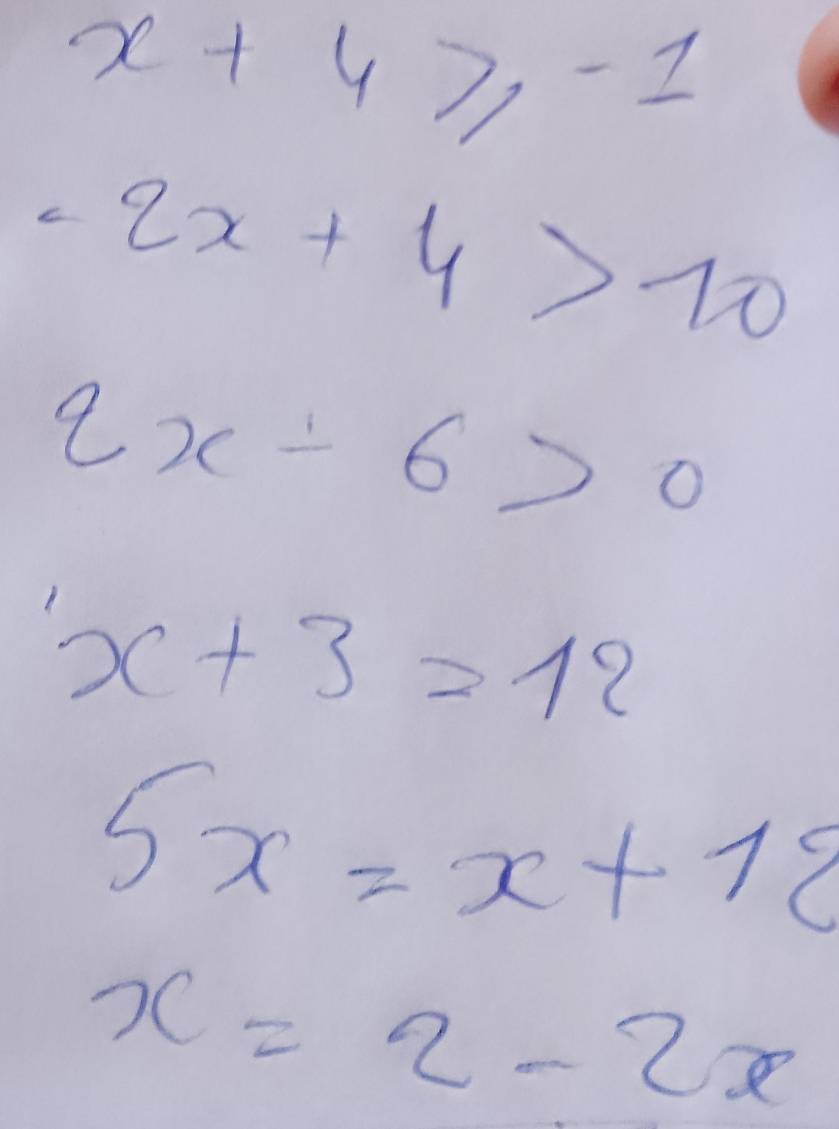 x + 4 ⩾ -1
-2x + 4 > 10
2x ∸ 6 > 0
x + 3 = 12
5x = x + 12
x = 2 - 2x